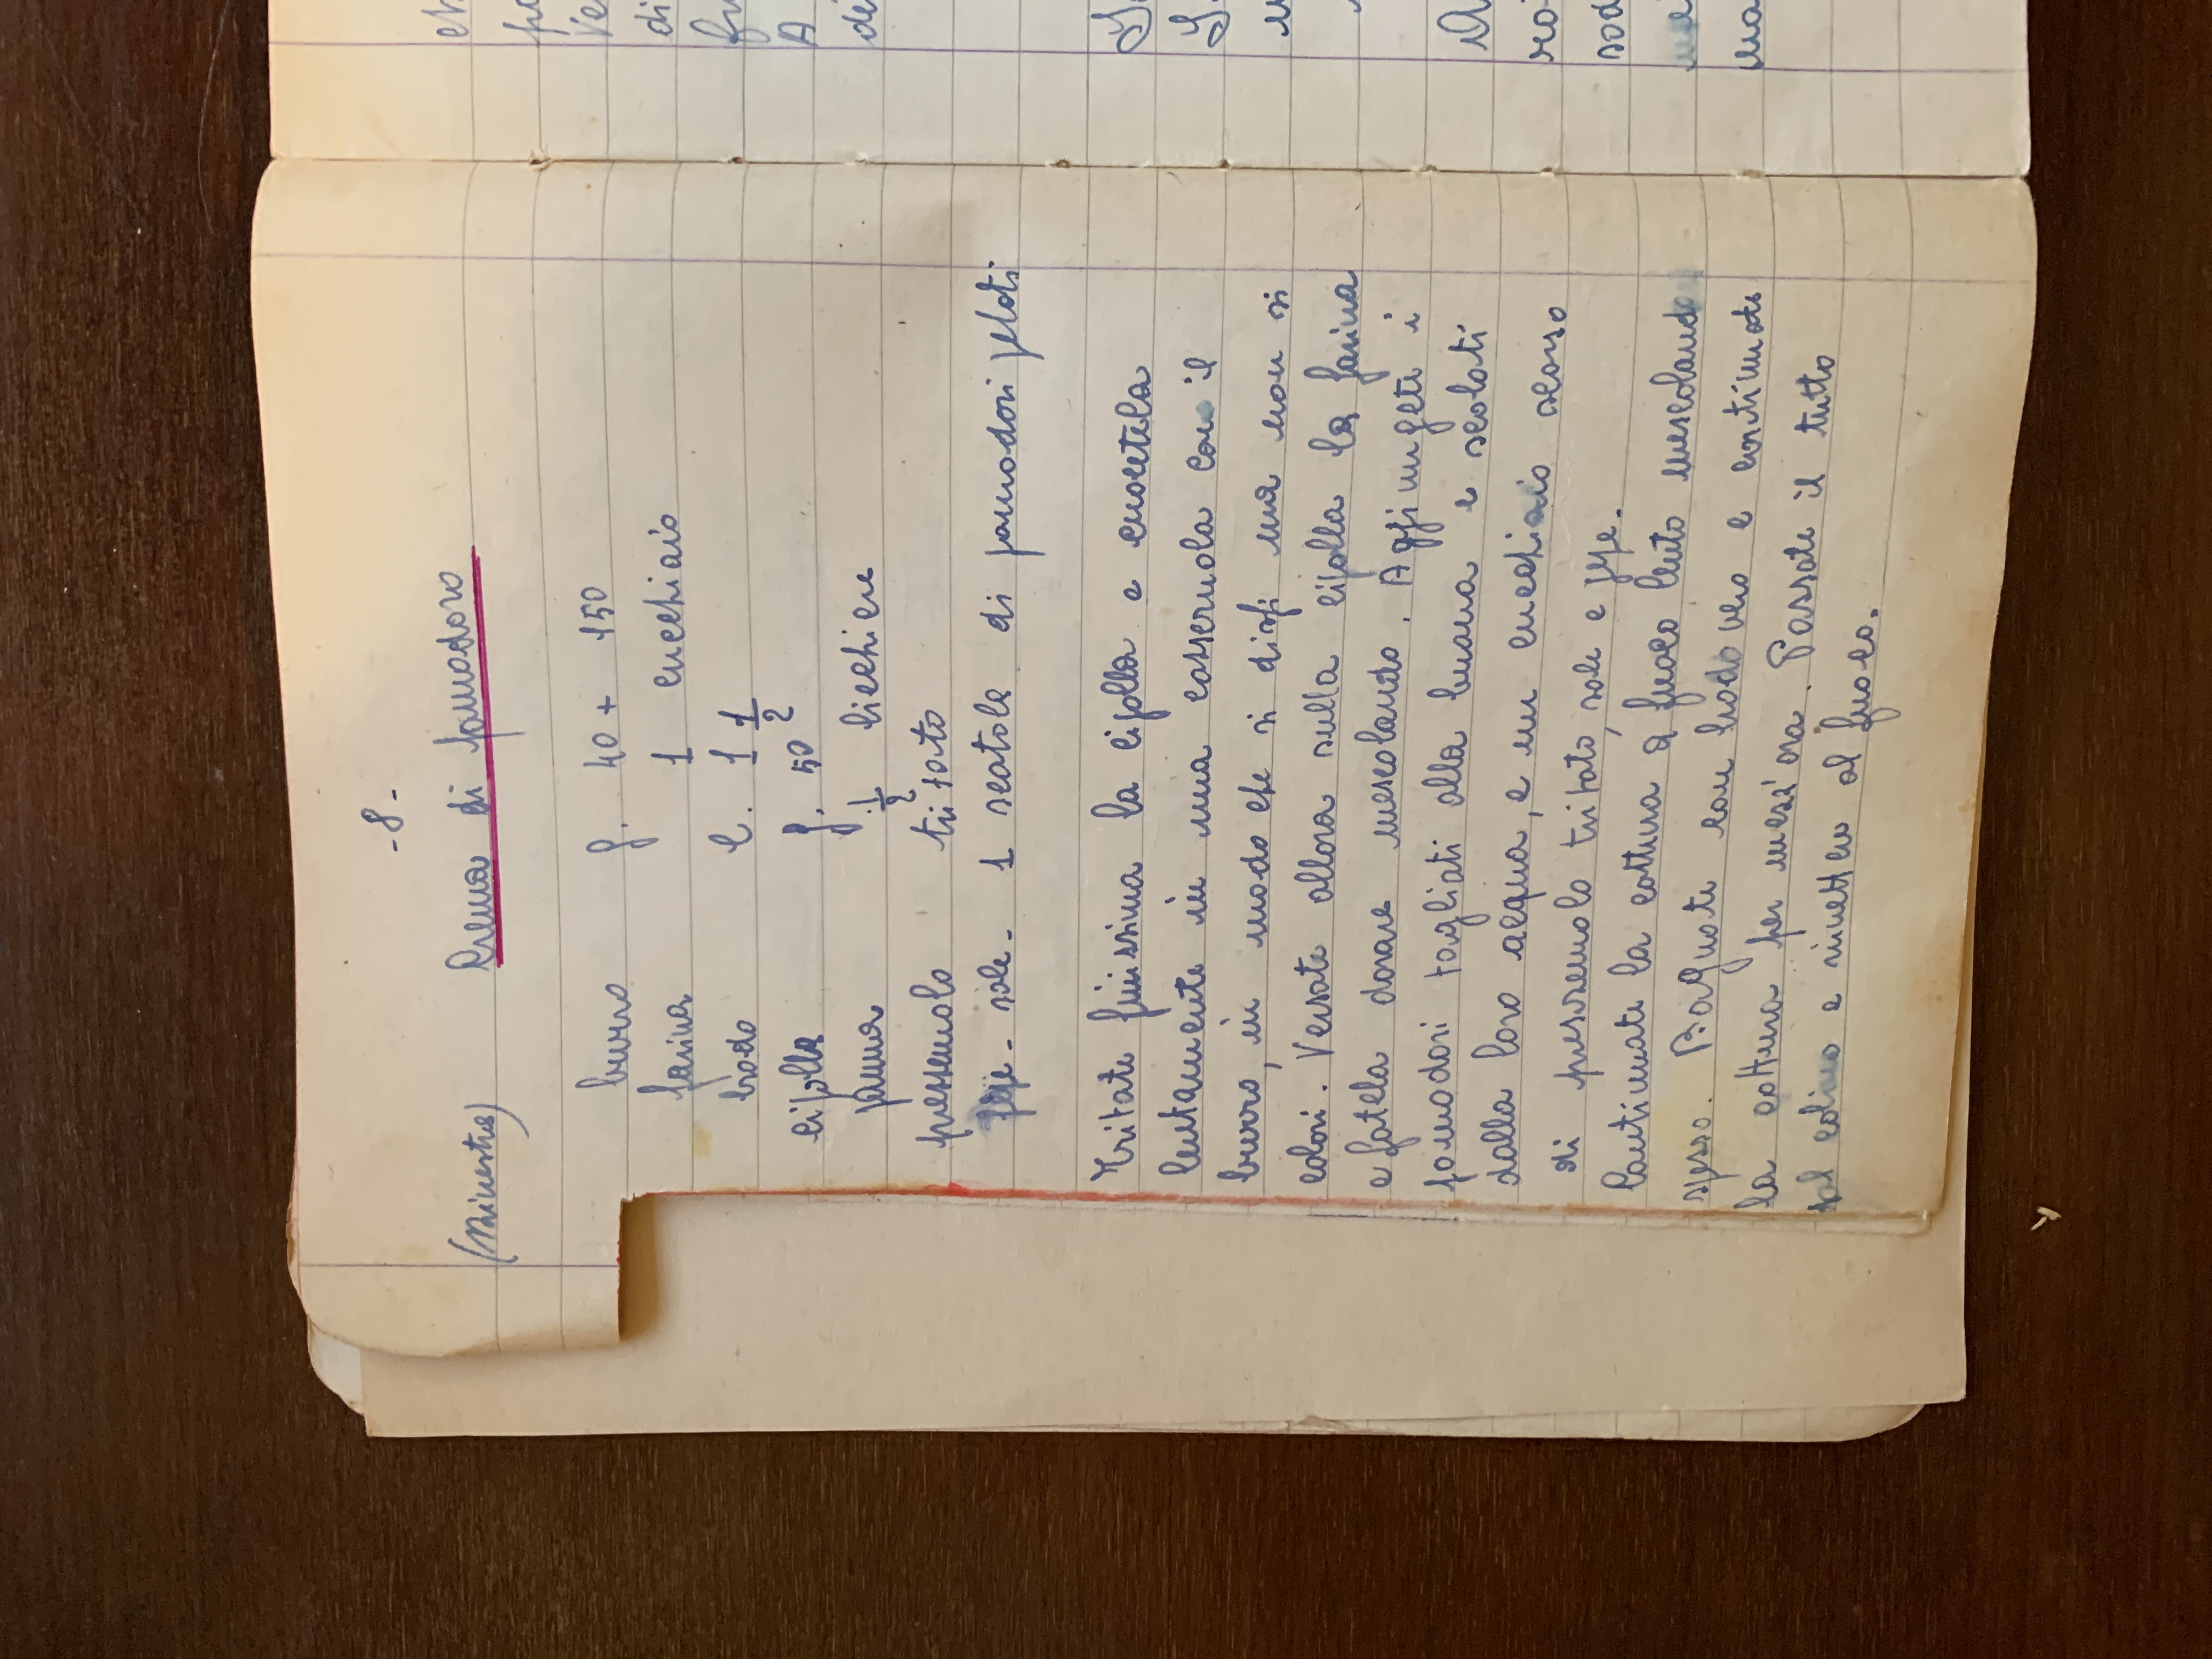 -8-
(Minestra) Crema di pomodoro
burro g. 40 + 150
farina 1 cucchiaio
brodo l. 1 1/2
cipolla g. 50
panna 1/2 bicchiere
pressemolo tritato
pepe - sale - 1 scatola di pomodori pelati
Tritate finissima la cipolla e cuocetela
lentamente in una casseruola con il
burro, in modo che si disfi ma non si
colori. Versate allora sulla cipolla la farina
e fatela dorare mescolando. Aggiungete i
pomodori tagliati alla buona e scolati
dalla loro acqua, e un cucchiaio scarso
di pressemolo tritato, sale e pepe.
Continuate la cottura a fuoco lento mescolando
spesso. Bagnate con brodo vero e continuate
la cottura per mezz'ora. Passate il tutto
dal colino e rimettere al fuoco.
ch
po
Ve
di
fu
A
de
ro
sod
me
ma